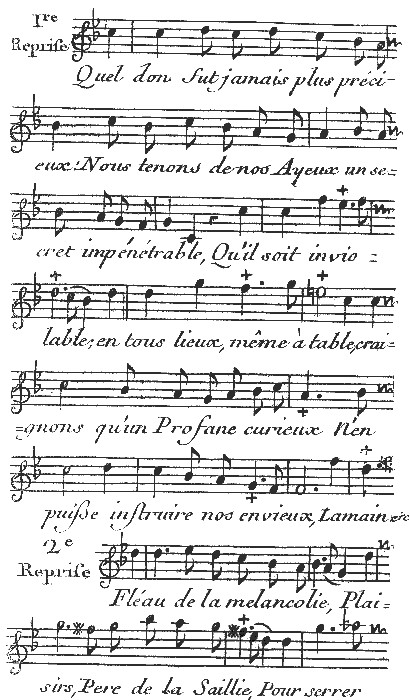 1re
Reprise
Quel don fut jamais plus préci-
eux: Nous tenons de nos Ayeux un se-
cret impénétrable, Qu'il soit invio-
lable; en tous lieux, même à table, crai-
-gnons qu'un Profane curieux N'en
puisse instruire nos envieux, La main &c
2e
Reprise
Fléau de la melancolie, Plai-
sirs, Pere de la Saillie, Pour serrer